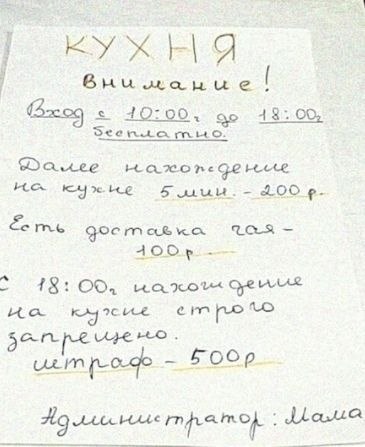 КУХНЯ
Внимание!
Вход с 10:00г до 18:00г
бесплатно.
Далее нахождение
на кухне 5 мин. - 200 р.
Есть доставка чая -
100 р.
С 18:00г нахождение
на кухне строго
запрещено.
штраф - 500 р
Администратор: Мама